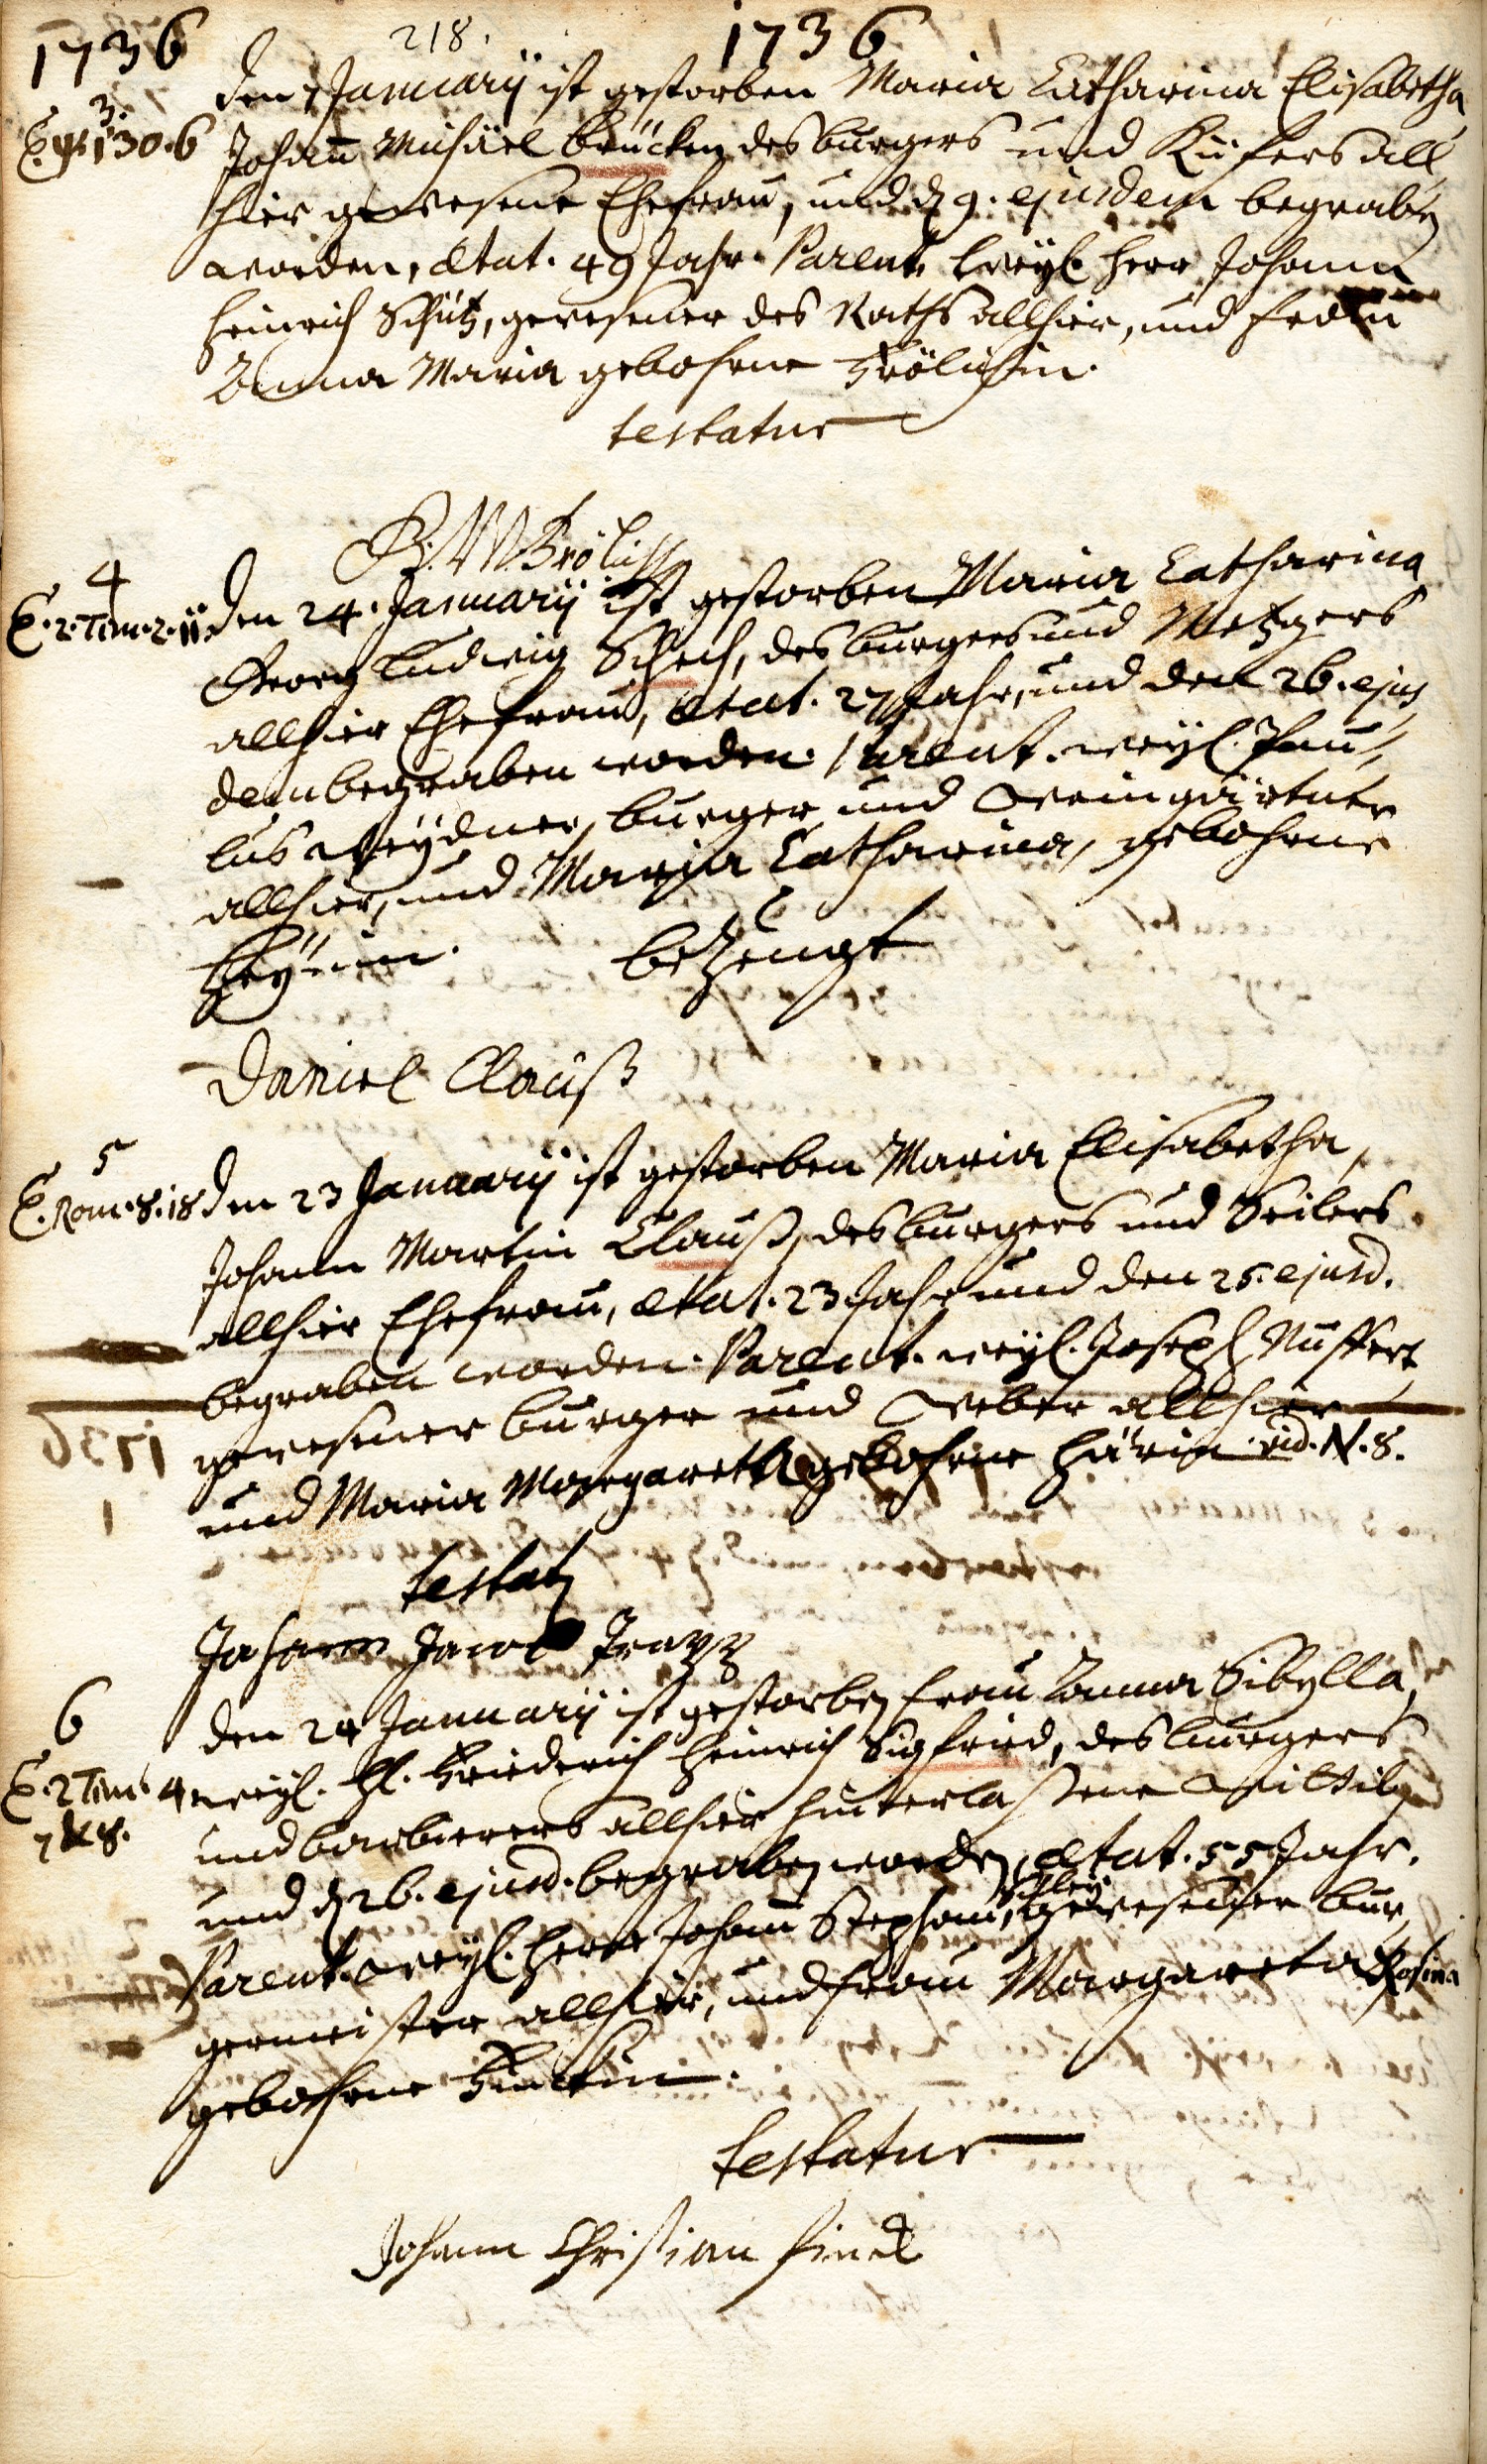 1736 218. 1736
3.
Den 7 January ist gestorben Maria Catharina Elisabetha
Johann Michäel Brücken des burgers und Küfers all
hier gewesene Ehefrau, und d 9. ejusdem begraben
worden, ætat. 49 Jahr. Parent. Weyl. Herr Johann
Heinrich Schütz, gewesener des Raths allhier, und Frau
Anna Maria gebohrne Frölichin.
testatur
G. W. Frölich
4
E. 2. Tim. 2. 11. Den 24. January ist gestorben Maria Catharina
Georg Ludwig Schech, des burgers und Metzgers
allhier Ehefrau, ætat. 27 Jahr, und den 26. ejus
dem begraben worden. Parent. weyl. Pau
lus Weydner, burger und Weingärtner
allhier, und Maria Catharina, gebohrne
bezeugt
Daniel Clauß
5
E. Rom. 8. 18 Den 23 January ist gestorben Maria Elisabetha,
Johann Martin Clauß, des burgers und Seilers
allhier Ehefrau, ætat. 23 Jahr und den 25. ejusd.
begraben worden. Parent. weyl. Joseph Nuffert
gewesener burger und Weber allhier
und Maria Margaretha gebohrne Härin vid. N. 8.
testat
Johann Jacob
6
Den 24 January ist gestorben Frau Anna Sibylla,
E. 2 Tim. 4 weyl. H. Friederich Heinrich Sigfried, des burgers
7 & 8. und barbierers allhier hinterlaßene Wittib
und d 26. ejusd. begraben worden, ætat. 55 Jahr.
Parent. Weyl. Herr Johann Stephan, gewesener bur
germeister allhier, und Frau Margareta Rosina
gebohrne
testatur
Johann Christian Finck